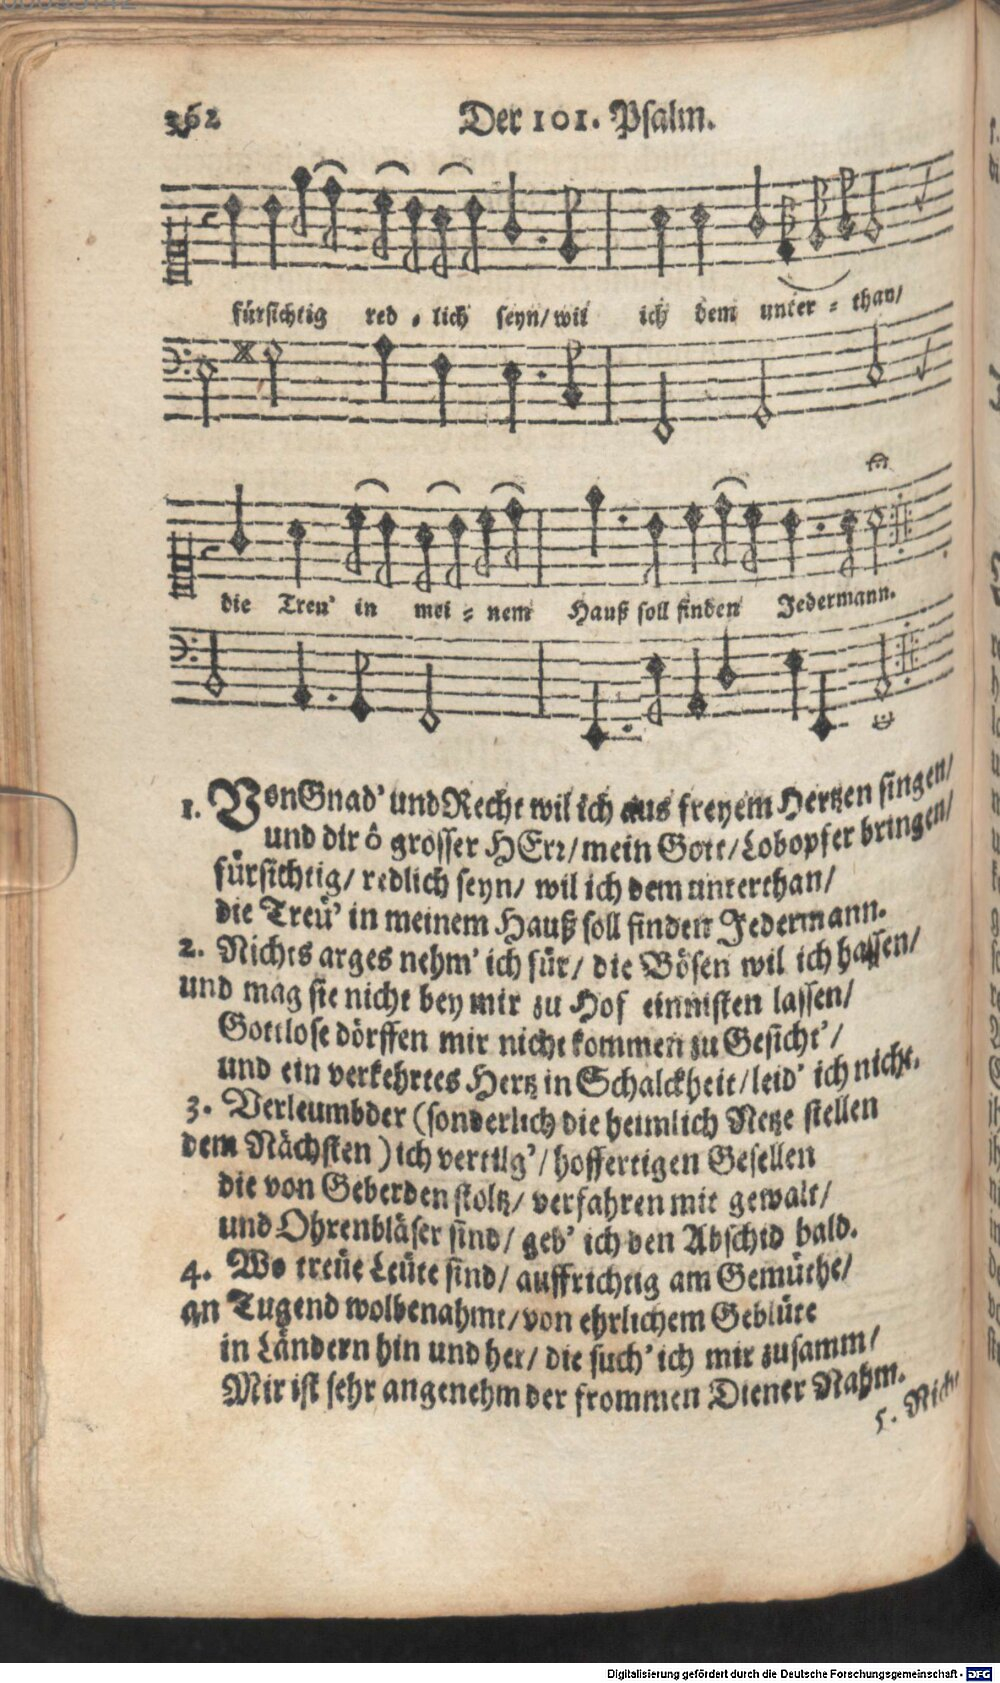 362
Der 101. Psalm.
fürsichtig red-lich seyn/wil ich dem unter-than/
die Treu' in mei-nem Hauß soll finden Jedermann.
1. Von Gnad' und Recht wil ich aus freyem Hertzen singen/
und dir ô grosser HErr/mein Gott/Lobopfer bringen/
fürsichtig/redlich seyn/ wil ich dem unterthan/
die Treü' in meinem Hauß soll finden Jedermann.
2. Nichts arges nehm' ich für/ die Bösen wil ich hassen/
und mag sie nicht bey mir zu Hof einnisten lassen/
Gottlose dörffen mir nicht kommen zu Gesicht'/
und ein verkehrtes Hertz in Schalckheit/leid' ich nicht.
3. Verleumbder (sonderlich die heimlich Netze stellen
dem Nächsten) ich vertilg'/hoffertigen Gesellen
die von Geberden stoltz/ verfahren mit gewalt/
und Ohrenbläser sind/ geb' ich den Abschid bald.
4. Wo treüe Leüte sind/ auffrichtig am Gemüthe/
an Tugend wolbenahmt/von ehrlichem Geblüte
in Ländern hin und her/ die such' ich mir zusamm/
Mir ist sehr angenehm der frommen Diener Nahm.
5. Nich
Digitalisierung gefördert durch die Deutsche Forschungsgemeinschaft - DFG